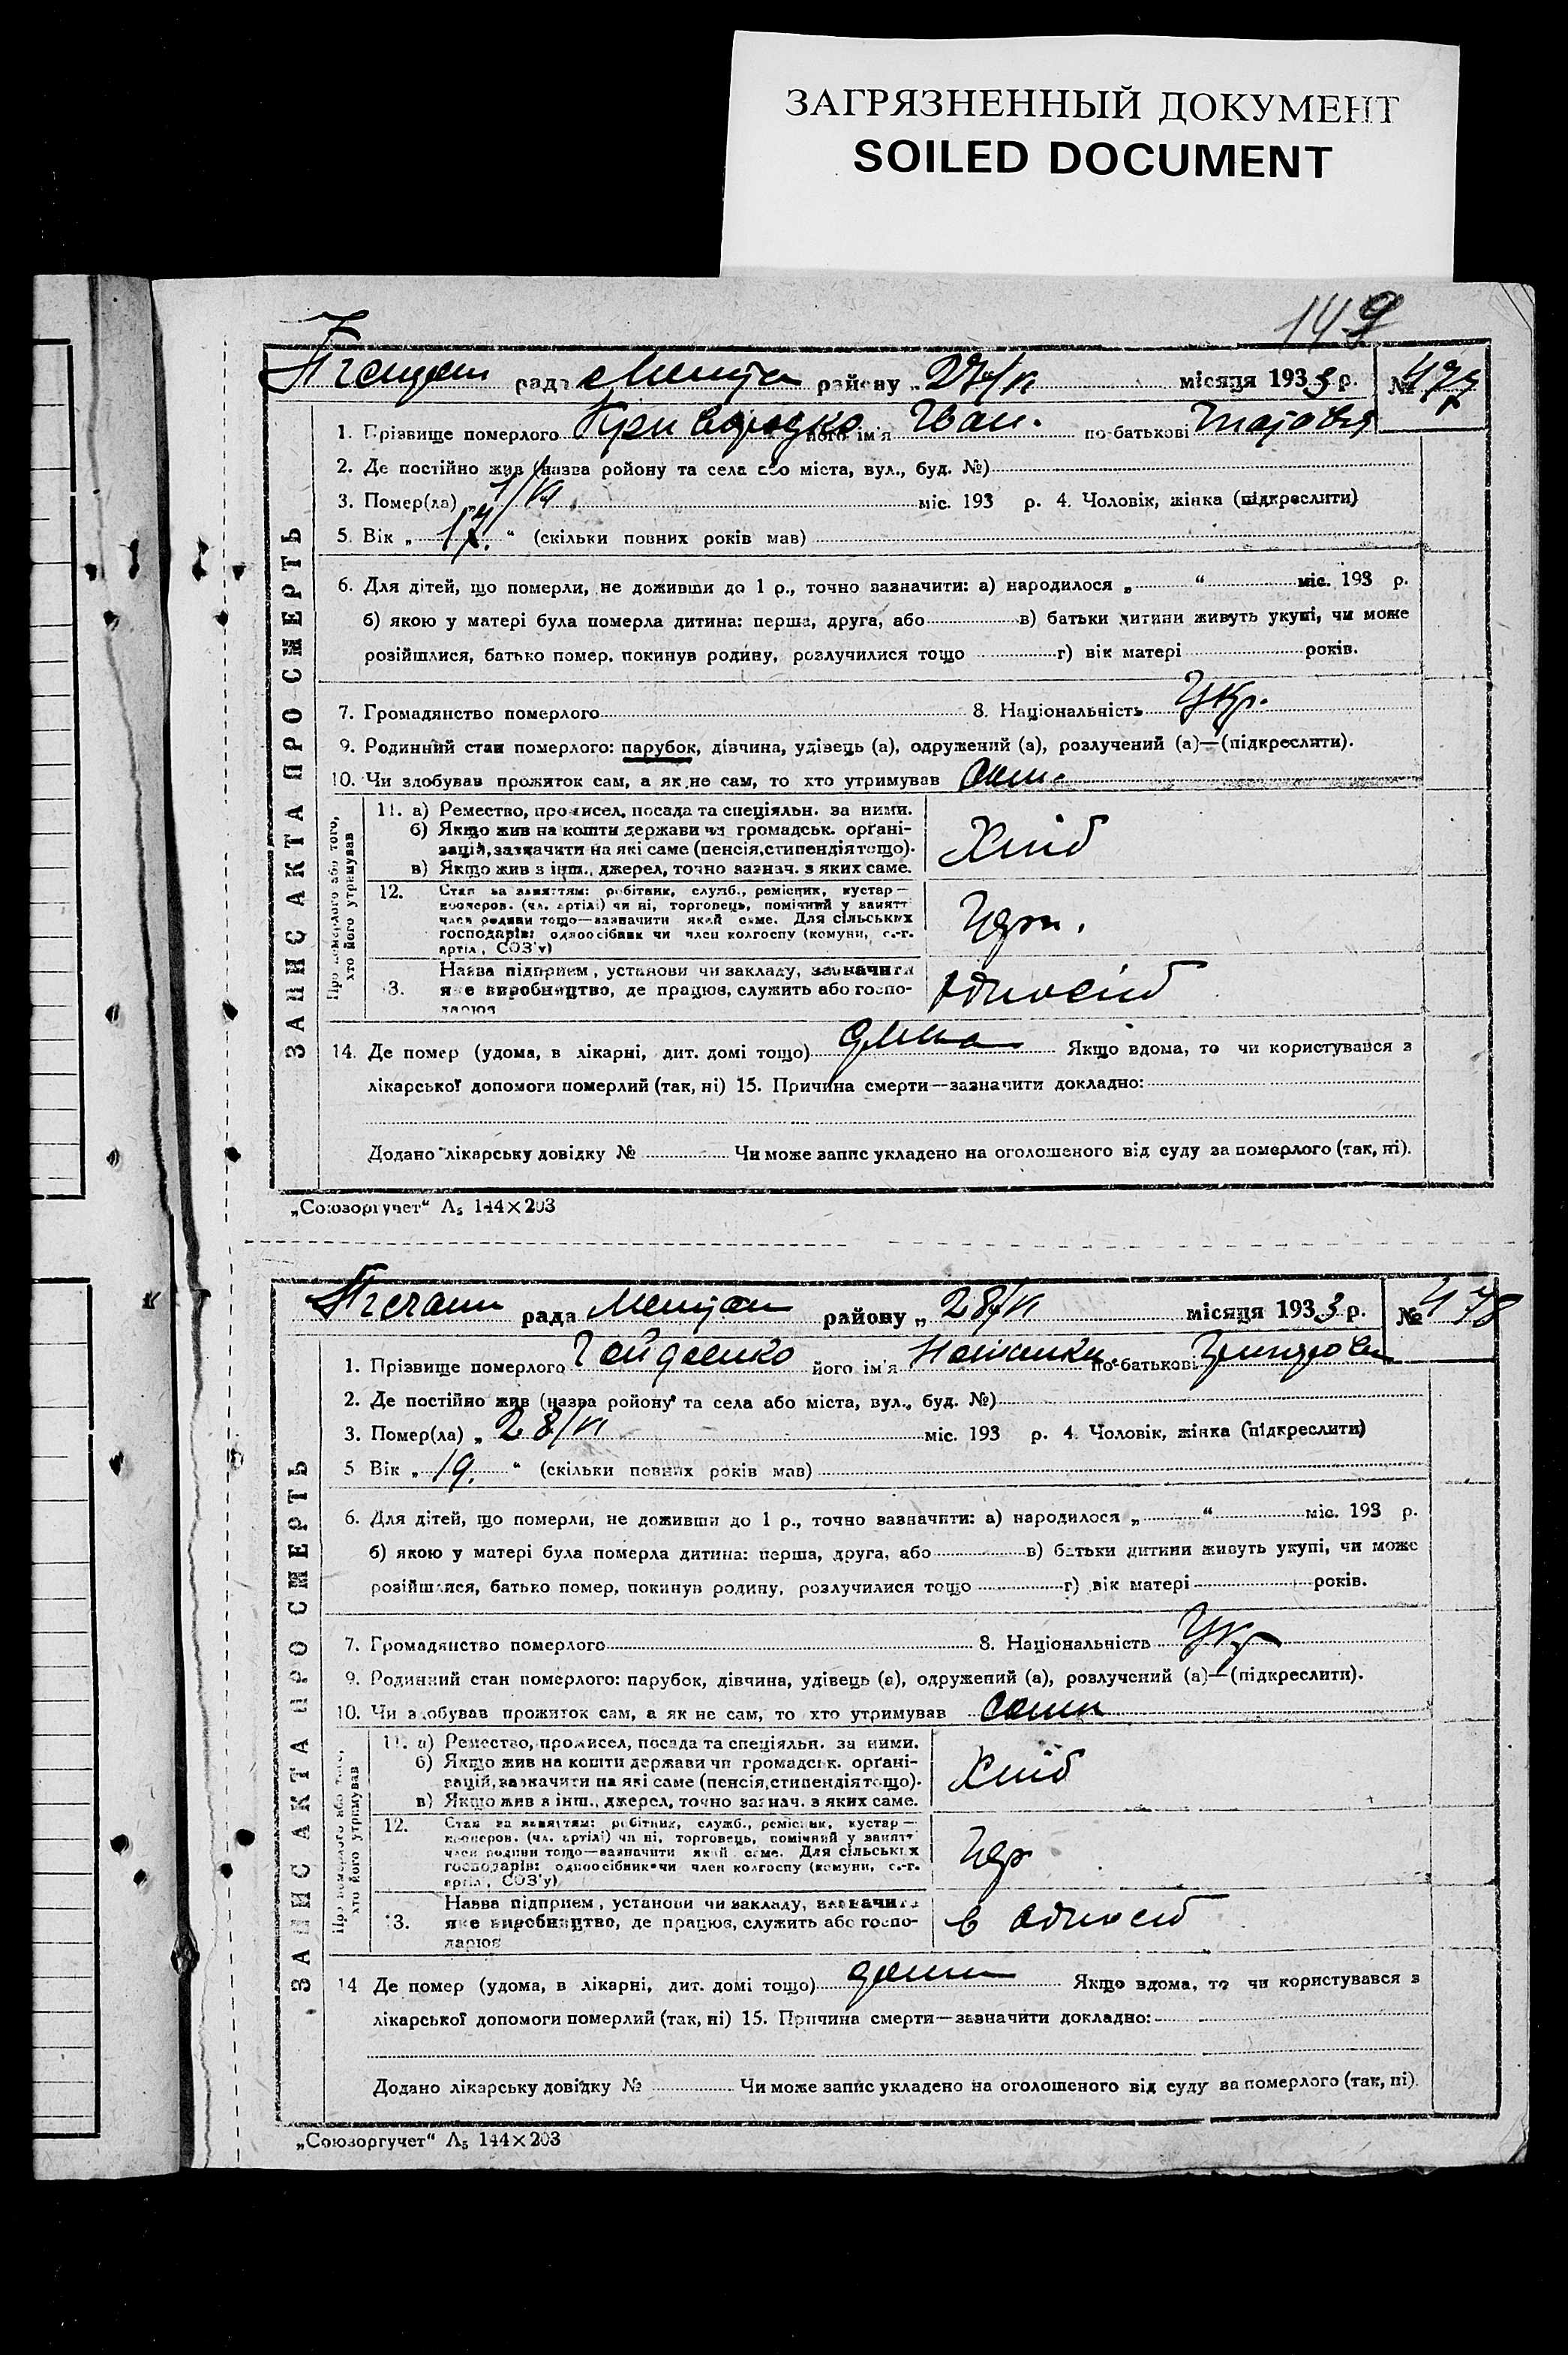 ЗАГРЯЗНЕННЫЙ ДОКУМЕНТ
SOILED DOCUMENT
149
рада району „ 27/VI місяця 1933 р. № 477
ЗАПИС АКТА ПРО СМЕРТЬ
1. Прізвище померлого його ім'я Іван. по-батькові
2. Де постійно жив (назва ройону та села або міста, вул., буд. №)
3. Помер(ла) „ міс. 193 р. 4. Чоловік, жінка (підкреслити)
5. Вік „ 17. “ (скільки повних років мав)
6. Для дітей, що померли, не доживши до 1 р., точно вазначити: а) народилося „ “ міс. 193 р.
б) якою у матері була померла дитина: перша, друга, або в) батьки дитини живуть укупі, чи може
розійшлися, батько помер, покинув родину, розлучилися тощо г) вік матері років.
7. Громадянство померлого 8. Національність Укр.
9. Родинний стан померлого: парубок, дівчина, удівець (а), одружений (а), розлучений (а)—(підкреслити).
10. Чи здобував прожиток сам, а як не сам, то хто утримував сам.
Про померлого або того,
хто його утримував
11. а) Ремество, промисел, посада та спеціяльн. за ними.
б) Якщо жив на кошти держави чи громадськ. орґані-
зацій, зазначити на які саме (пенсія, стипендія тощо).
в) Якщо жив з інш., джерел, точно зазнач. з яких саме.
Хліб
12. Стан за заняттям: робітник, служб., ремісник, кустар—
кооперов. (чл. артілі) чи ні, торговець, помічний у занятт
член родини тощо—зазначити який саме. Для сільських
господарів: одноосібник чи член колгоспу (комуни, с.-г.
артіл, СОЗ'у)
13. Назва підприєм, установи чи закладу, зазначити
яке виробництво, де працює, служить або госпо-
дарює
одноосіб
14. Де помер (удома, в лікарні, дит. домі тощо) дома Якщо вдома, то чи користувався з
лікарської допомоги померлий (так, ні) 15. Причина смерти—зазначити докладно:
Додано лікарську довідку № Чи може запис укладено на оголошеного від суду за померлого (так, ні).
„Союзоргучет“ А5 144×203
рада району „ 28/VI місяця 1933 р. № 478
ЗАПИС АКТА ПРО СМЕРТЬ
1. Прізвище померлого Гайденко його ім'я по-батькові
2. Де постійно жив (назва ройону та села або міста, вул., буд. №)
3. Помер(ла) „ 28/VI міс. 193 р. 4. Чоловік, жінка (підкреслити)
5 Вік „ 19. “ (скільки повних років мав)
6. Для дітей, що померли, не доживши до 1 р., точно вазначити: а) народилося „ “ міс. 193 р.
б) якою у матері була померла дитина: перша, друга, або в) батьки дитини живуть укупі, чи може
розійшлися, батько помер, покинув родину, розлучилися тощо г) вік матері років.
7. Громадянство померлого 8. Національність Укр
9. Родинний стан померлого: парубок, дівчина, удівець (а), одружений (а), розлучений (а)—(підкреслити).
10. Чи здобував прожиток сам, а як не сам, то хто утримував
Про померлого або того,
хто його утримував
11. а) Ремество, промисел, посада та спеціяльн. за ними.
б) Якщо жив на кошти держави чи громадськ. орґані-
зацій, вазначити на які саме (пенсія, стипендія тощо).
в) Якщо жив з інш., джерел, точно зазнач. з яких саме.
Хліб
12. Стан за заняттям: робітник, служб., ремісник, кустар—
кооперов. (чл. артілі) чи ні, торговець, помічний у занятт
член родини тощо—вазначити який саме. Для сільських
господарів: одноосібник чи член колгоспу (комуни, с.-г.
артіл, СОЗ'у)
13. Назва підприєм, установи чи закладу, вазначити
яке виробництво, де працює, служить або госпо-
дарює
в одноосіб
14 Де помер (удома, в лікарні, дит. домі тощо) дома Якщо вдома, то чи користувався з
лікарської допомоги померлий (так, ні) 15. Причина смерти—зазначити докладно:
Додано лікарську довідку № Чи може запис укладено на оголошеного від суду за померлого (так, ні).
„Союзоргучет“ А5 144×203